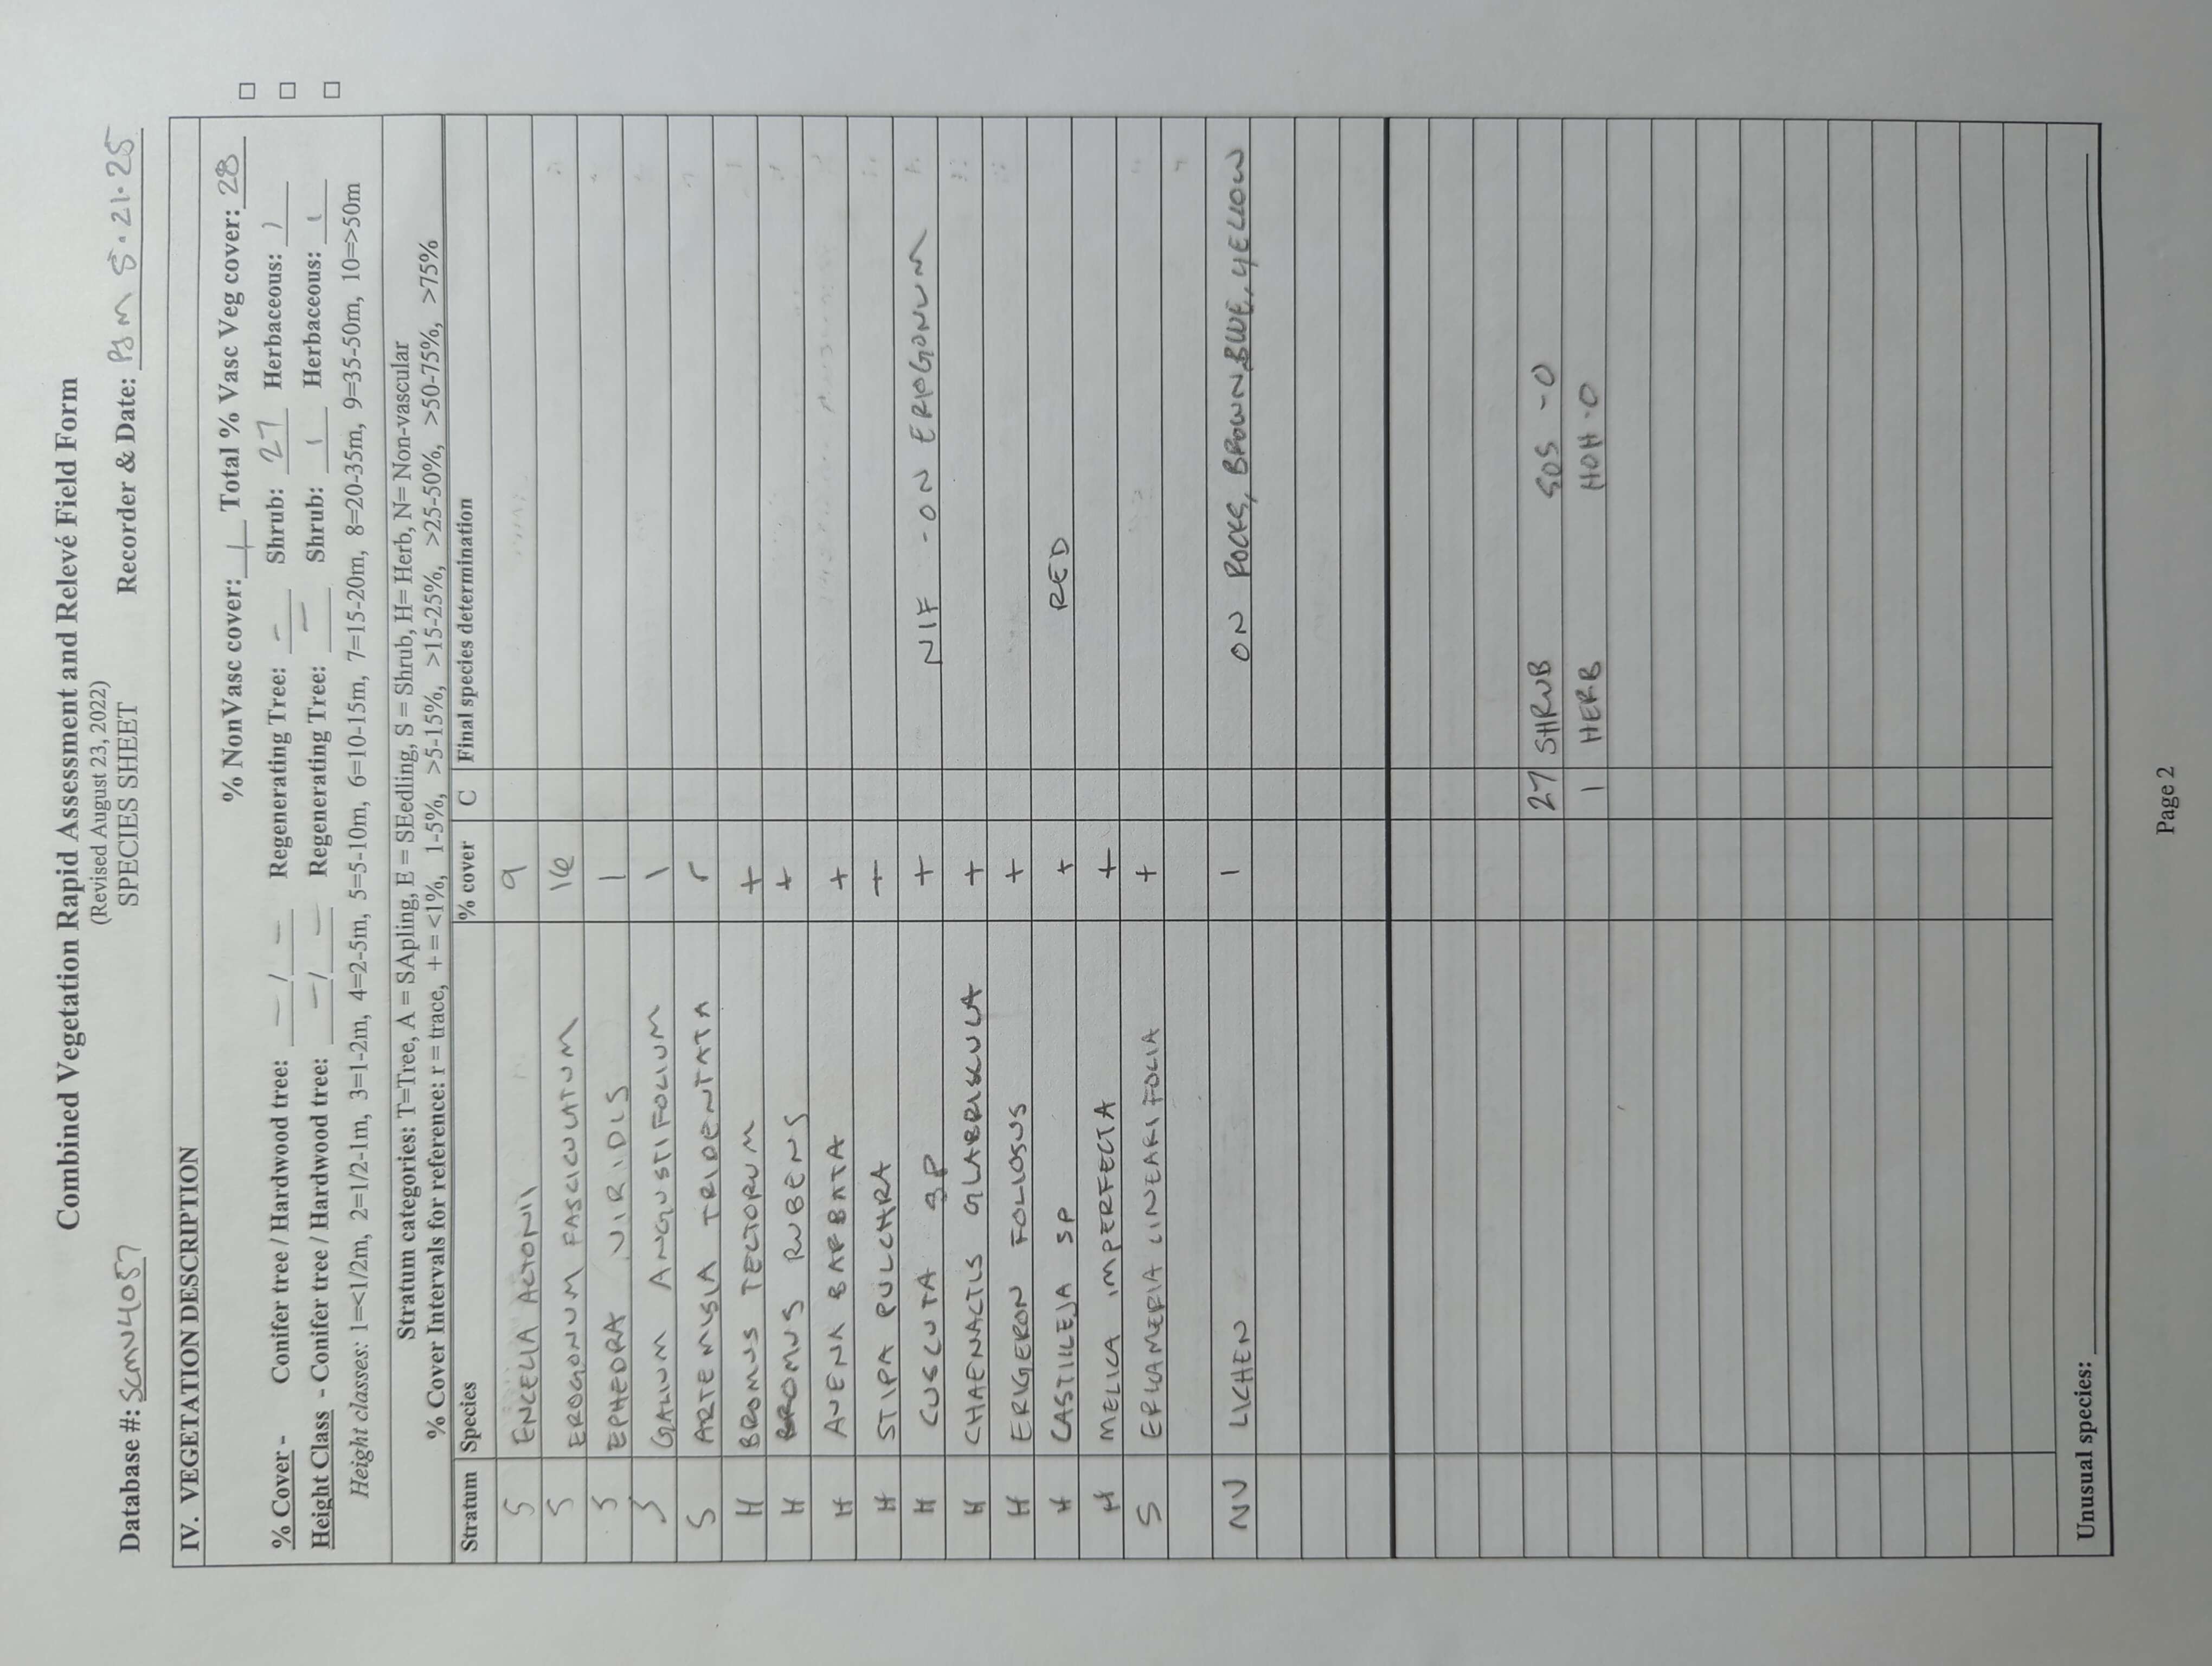 Combined Vegetation Rapid Assessment and Relevé Field Form
(Revised August 23, 2022)
SPECIES SHEET
Database #: SCMV4057 Recorder & Date: PJM 5.21.25
IV. VEGETATION DESCRIPTION
% NonVasc cover: 1 Total % Vasc Veg cover: 28 □
% Cover - Conifer tree / Hardwood tree: - / - Regenerating Tree: - Shrub: 27 Herbaceous: 1 □
Height Class - Conifer tree / Hardwood tree: - / - Regenerating Tree: - Shrub: 1 Herbaceous: 1 □
Height classes: 1=<1/2m, 2=1/2-1m, 3=1-2m, 4=2-5m, 5=5-10m, 6=10-15m, 7=15-20m, 8=20-35m, 9=35-50m, 10=>50m
Stratum categories: T=Tree, A = SApling, E = SEedling, S = Shrub, H= Herb, N= Non-vascular
% Cover Intervals for reference: r = trace, + = <1%, 1-5%, >5-15%, >15-25%, >25-50%, >50-75%, >75%
Stratum Species % cover C Final species determination
S ENCELIA ACTONII 9
S EROGONUM FASCICULATUM 16
S EPHEDRA VIRIDIS 1
S GALIUM ANGUSTIFOLIUM 1
S ARTEMISIA TRIDENTATA r
H BROMUS TECTORUM +
H BROMUS RUBENS +
H AVENA BARBATA +
H STIPA PULCHRA +
H CUSCUTA SP + NIF - ON ERIOGONUM
H CHAENACTIS GLABRISCULA +
H ERIGERON FOLIOSUS +
H CASTILLEJA SP + RED
H MELICA IMPERFECTA +
S ERICAMERIA LINEARIFOLIA +
NV LICHEN 1 ON ROCKS, BROWN, BLUE, YELLOW
27 SHRUB SOS - 0
1 HERB HOH - 0
Unusual species:
Page 2